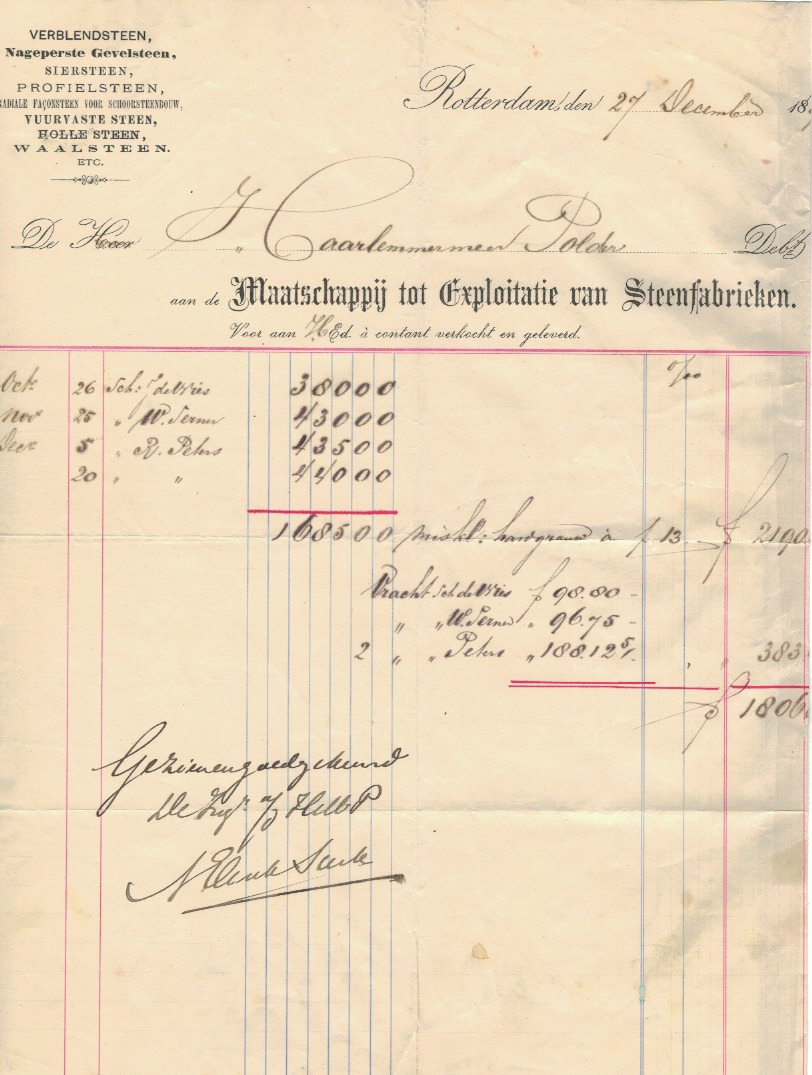 VERBLENDSTEEN,
Nageperste Gevelsteen,
SIERSTEEN,
PROFIELSTEEN,
RADIALE FAÇONSTEEN VOOR SCHOORSTEENBOUW,
VUURVASTE STEEN,
HOLLE STEEN,
WAALSTEEN.
ETC.
Rotterdam, den 27 December 18
De Heer Haarlemmermeer Polder Debt
aan de Maatschappij tot Exploitatie van Steenfabrieken.
Voor aan HEd. à contant verkocht en geleverd.
Oct 26 Sch: J de Vries 38000
Nov 25 " W. Serner 43000
Decr 5 " R. Peters 43500
20 " " 44000
168500 miskl: hardgrauw à f 13 — f 2190
Vracht Sch. de Vries f 98.80 -
" " W. Serner " 96.75 -
2 " " Peters " 188.12⁵/. " 383
f 1806
Gezien en goedgekeurd
De Ingr. HMP